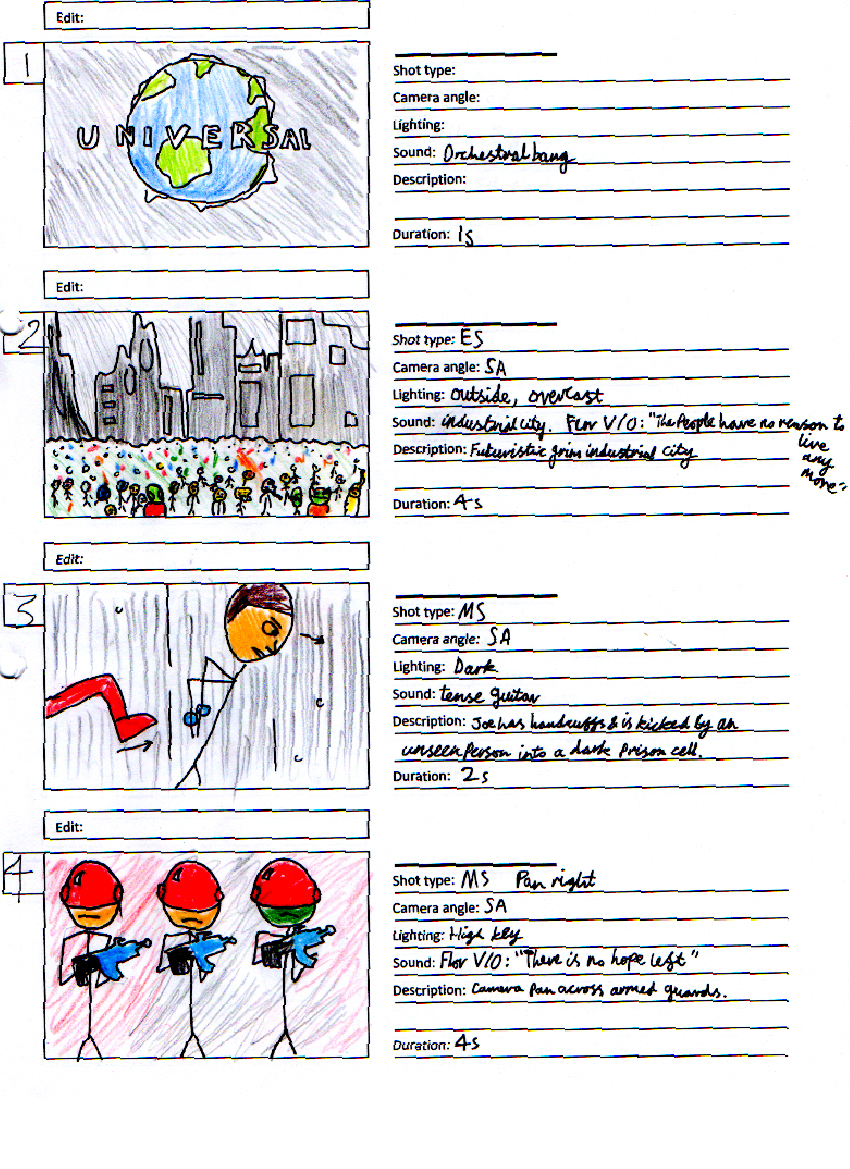 Edit:
1
UNIVERSAL
Shot type:
Camera angle:
Lighting:
Sound: Orchestral bang
Description:
Duration: 1s
Edit:
2
Shot type: ES
Camera angle: SA
Lighting: Outside, overcast
Sound: industrial city. Flor V/O: "The People have no reason to
live
any
more"
Description: Futuristic grim industrial city
Duration: 4s
Edit:
3
Shot type: MS
Camera angle: SA
Lighting: Dark
Sound: tense guitar
Description: Joe has handcuffs & is kicked by an
unseen Person into a dark Prison cell.
Duration: 2s
Edit:
4
Shot type: MS Pan right
Camera angle: SA
Lighting: High key
Sound: Flor V/O: "There is no hope left"
Description: Camera Pan across armed guards.
Duration: 4s